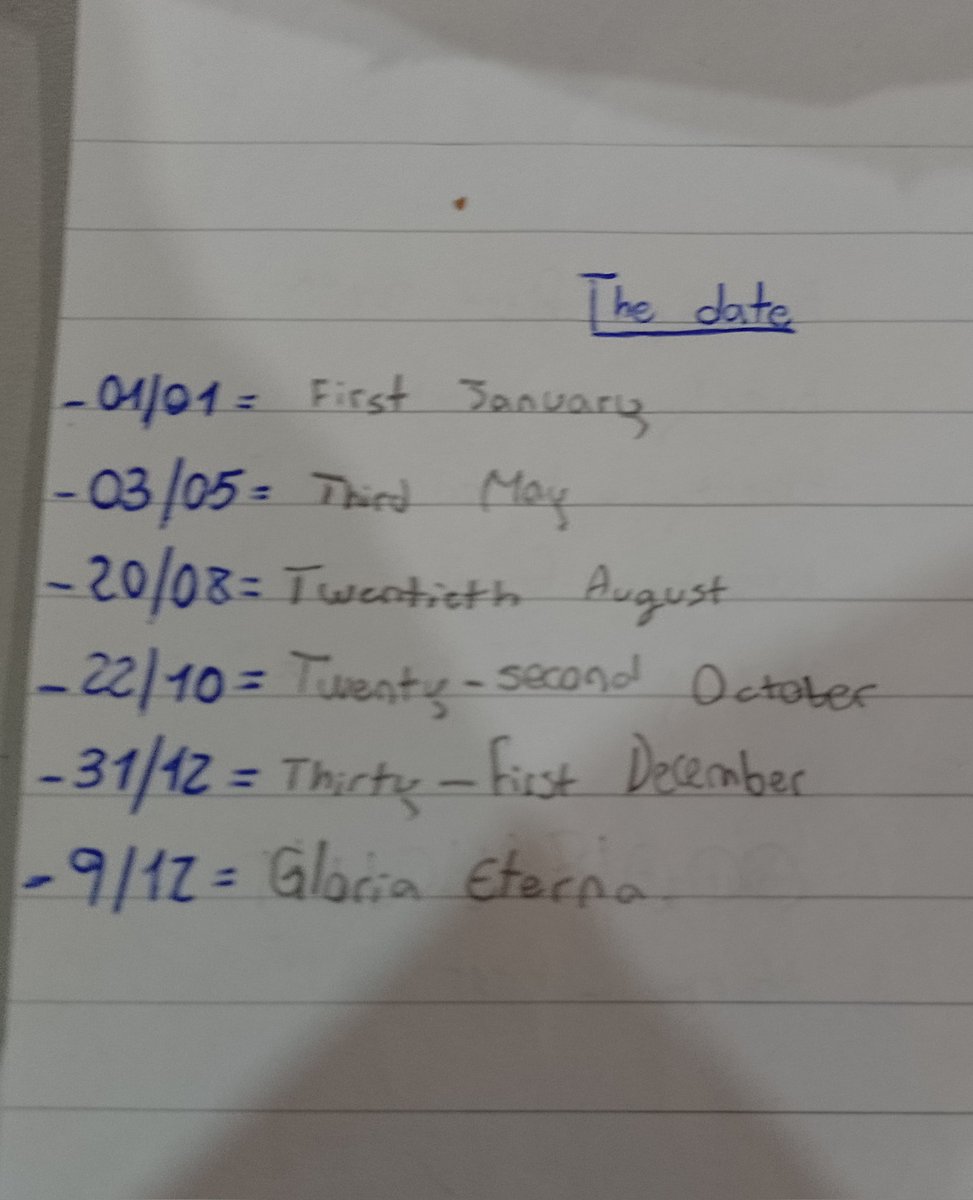 The date
- 01/01 = First January
- 03/05 = Third May
- 20/08 = Twentieth August
- 22/10 = Twenty - second October
- 31/12 = Thirty - First December
- 9/12 = Gloria Eterna